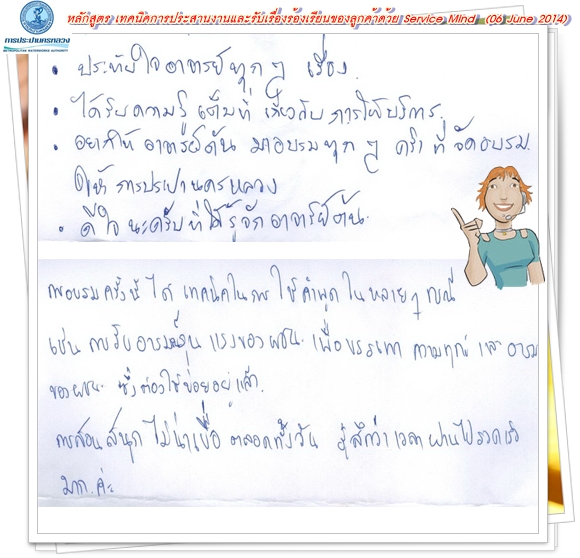 หลักสูตร เทคนิคการประสานงานและรับเรื่องร้องเรียนของลูกค้าด้วย Service Mind (06 June 2014)
การประปานครหลวง
METROPOLITAN WATERWORKS AUTHORITY
• ประทับใจอาจารย์ทุกๆ เรื่อง.
• ได้รับความรู้เต็มที่ เกี่ยวกับ การให้บริการ.
• อยากให้ อาจารย์ต้น มาอบรมทุกๆ ครั้ง ที่จัดอบรม.
ให้ การประปานครหลวง
• ดีใจนะครับที่ได้รู้จักอาจารย์ต้น.
การอบรมครั้งนี้ ได้ เทคนิคในการ ใช้คำพูด ในหลายๆ กรณี
เช่น การรับอารมณ์รุนแรงของผู้ชน. เพื่อบรรเทา ความทุกข์ และ อารมณ์
ของผู้ชน. ซึ่งต้องใช้บ่อยอยู่แล้ว.
การสอนสนุก ไม่น่าเบื่อ ตลอดทั้งวัน รู้สึกว่า เวลาผ่านไปรวดเร็ว
มาก.ค่ะ